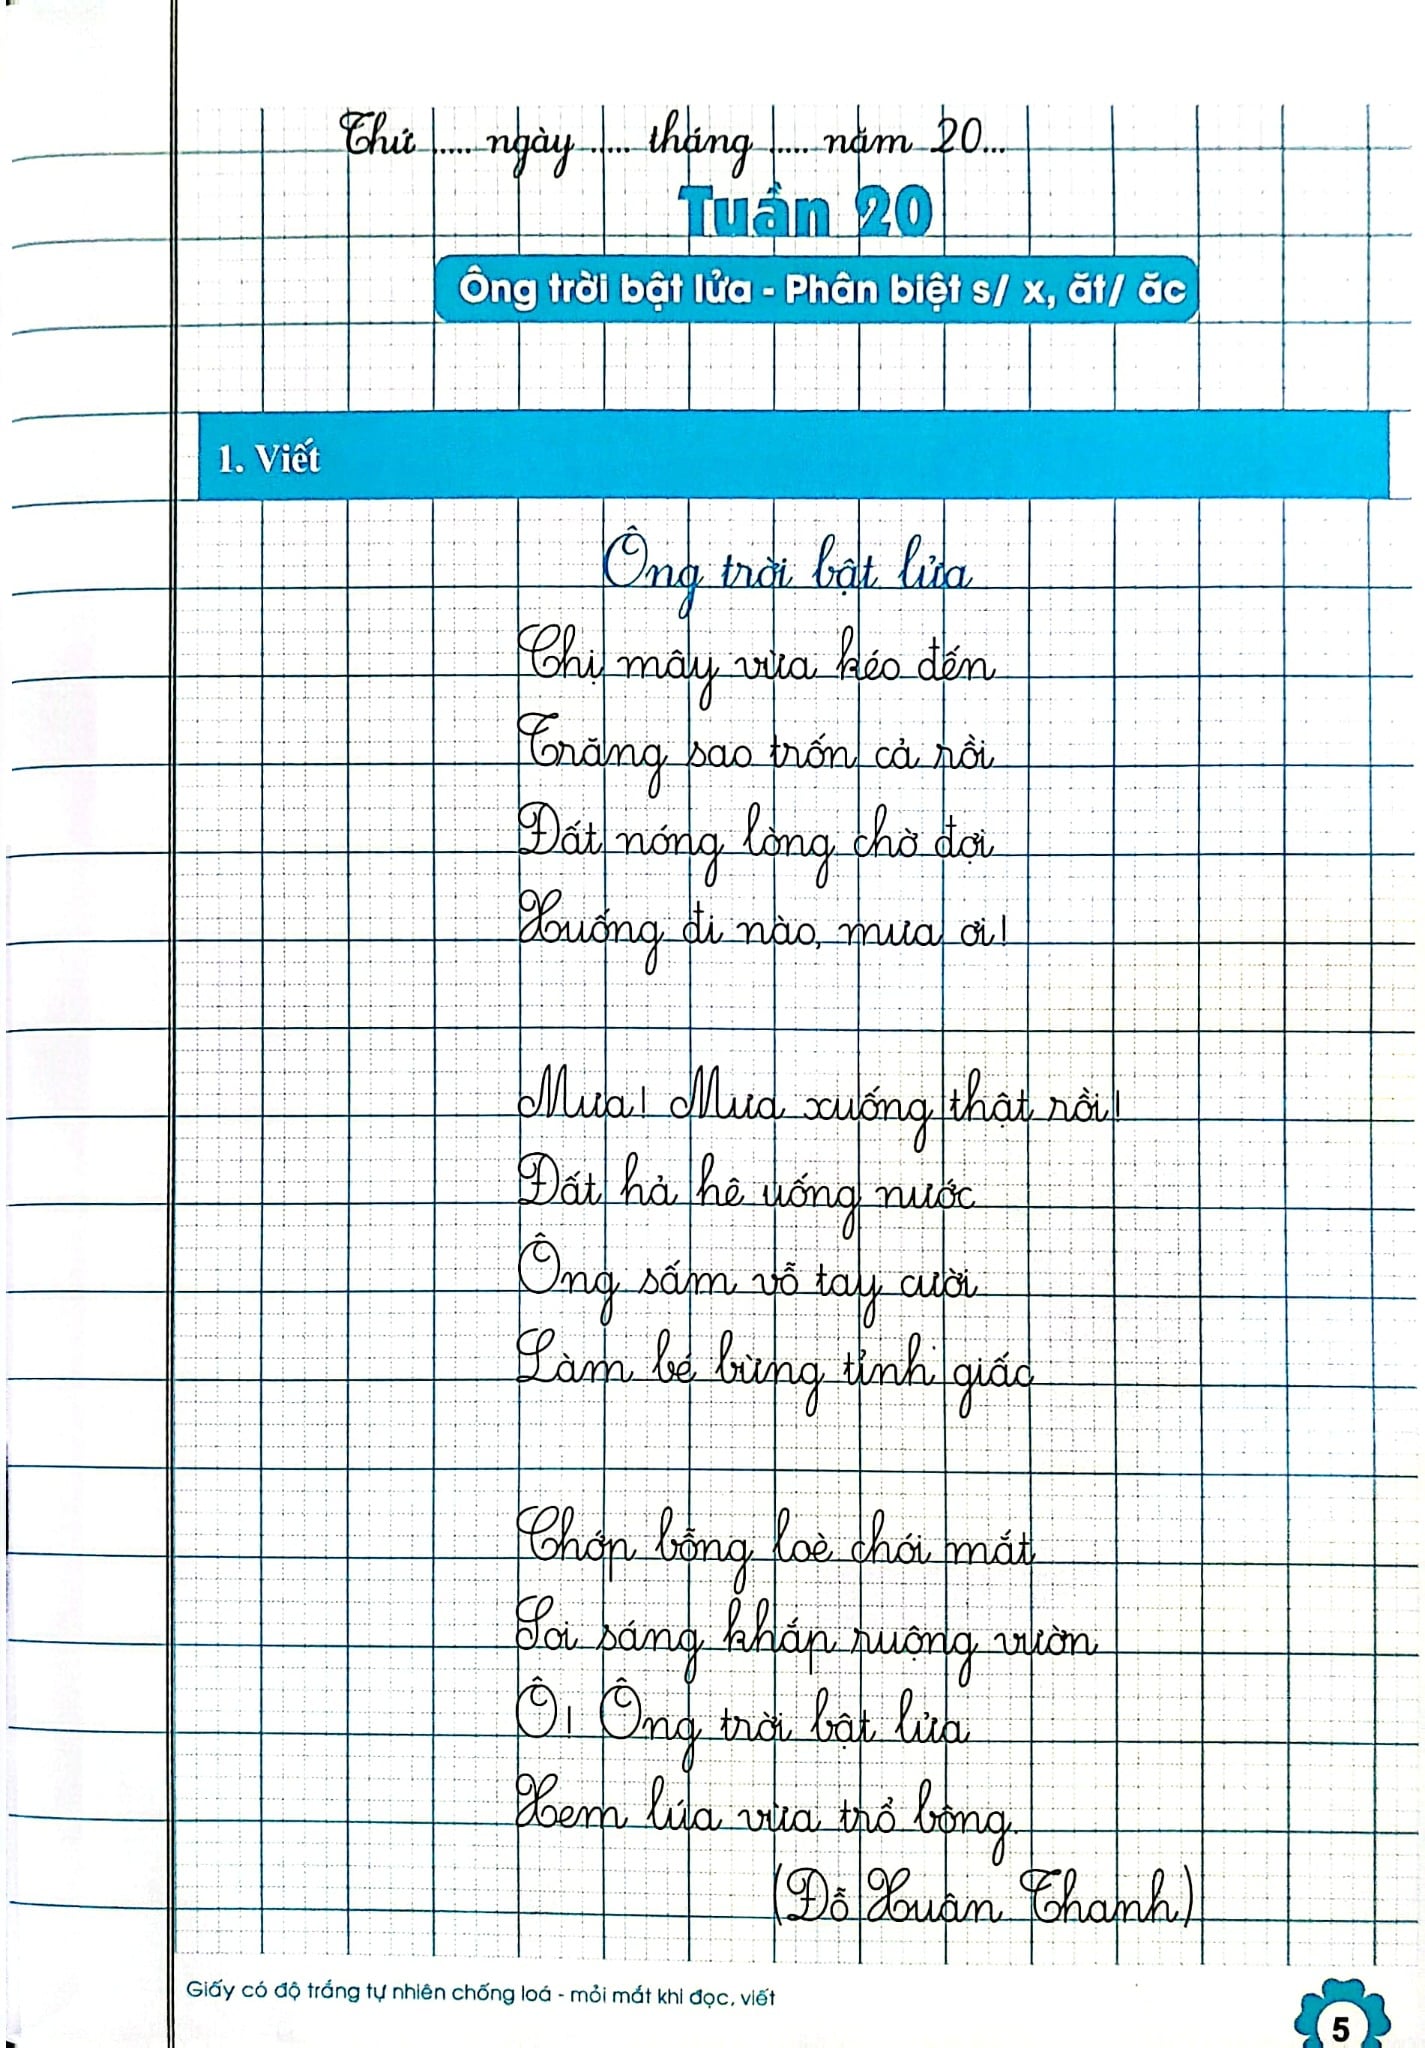 Thứ ..... ngày ..... tháng ..... năm 20...
Tuần 20
Ông trời bật lửa - Phân biệt s/ x, ăt/ ăc
1. Viết
Ông trời bật lửa
Chị mây vừa kéo đến
Trăng sao trốn cả rồi
Đất nóng lòng chờ đợi
Xuống đi nào, mưa ơi!
Mưa! Mưa xuống thật rồi!
Đất hả hê uống nước
Ông sấm vỗ tay cười
Làm bé bừng tỉnh giấc
Chớp bỗng loè chói mắt
Soi sáng khắp ruộng vườn
Ô! Ông trời bật lửa
Xem lúa vừa trổ bông.
(Đỗ Xuân Thanh)
Giấy có độ trắng tự nhiên chống loá - mỏi mắt khi đọc, viết
5